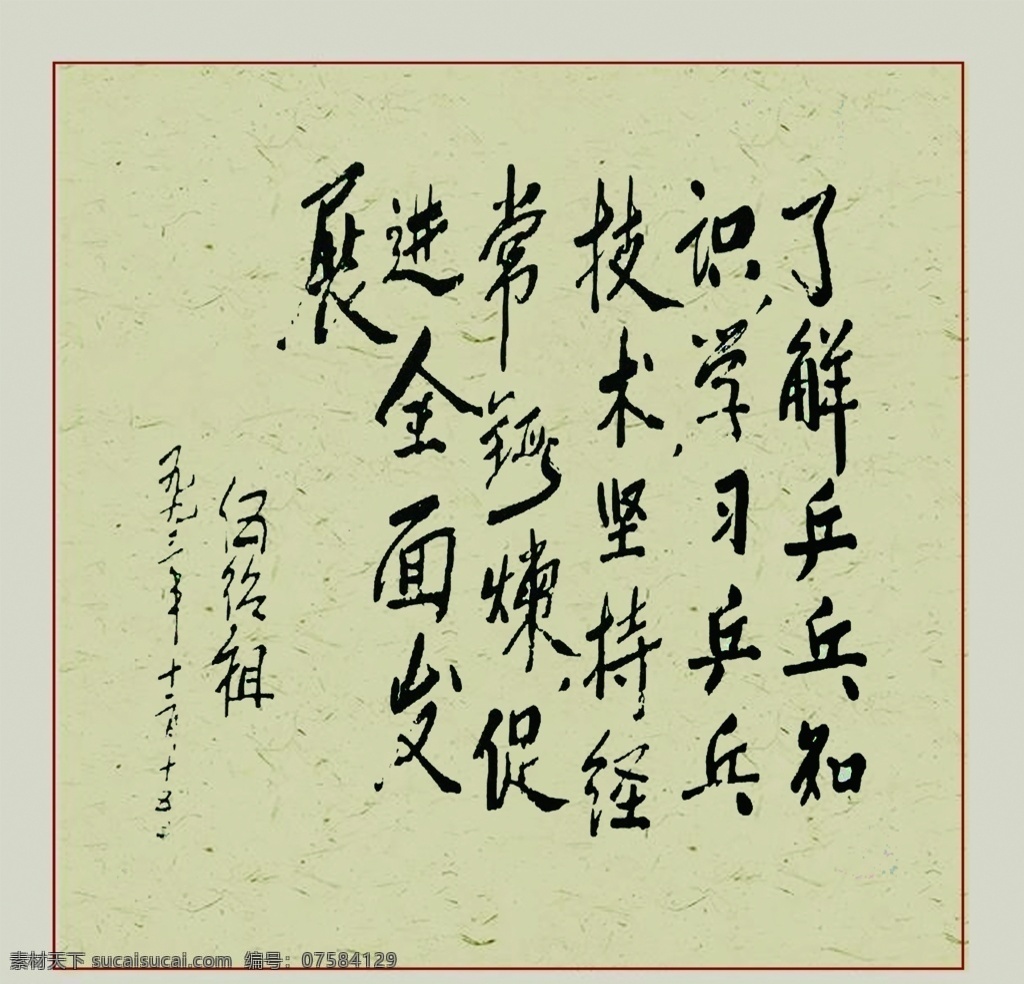 了解乒乓知
识，学习乒乓
技术，坚持经
常锻炼，促
进全面发
展．
伍绍祖
一九九三年十二月十五日
素材天下 sucaisucai.com 编号：07584129